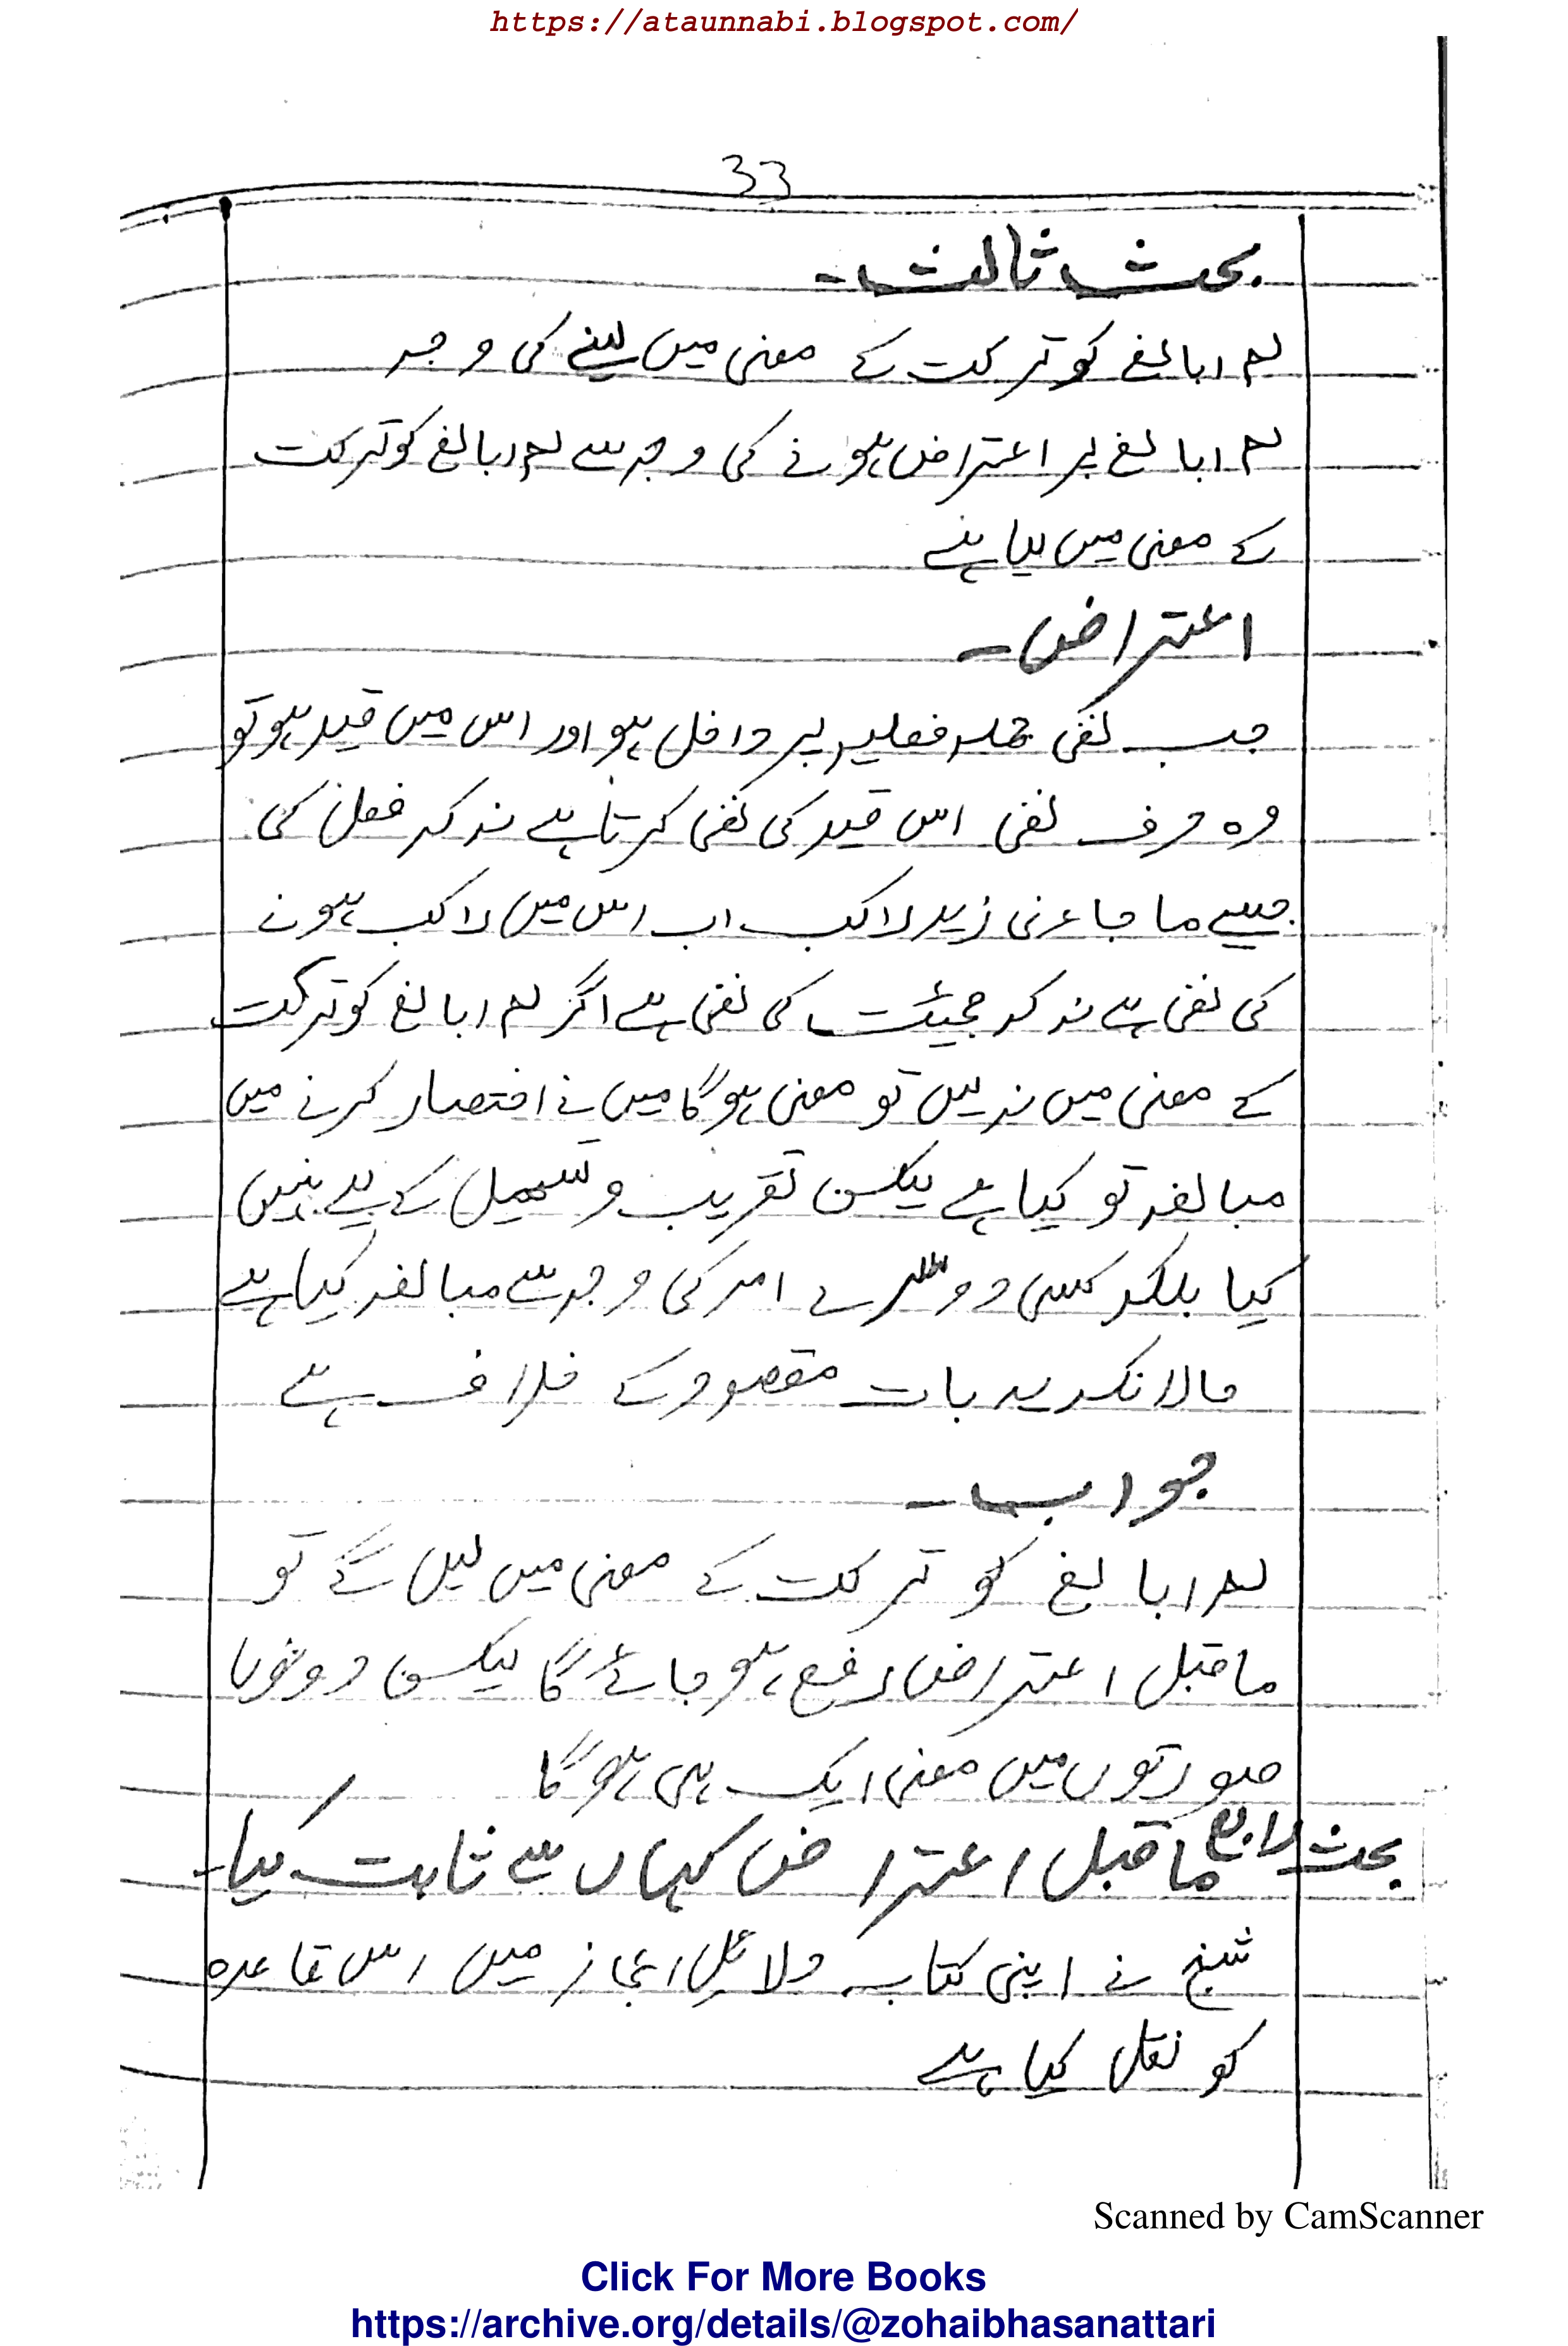 https://ataunnabi.blogspot.com/
33
بحث ثالث۔
لم ابالغ کو ترکت کے معنی میں لینے کی وجہ
لم ابالغ پر اعتراض ہونے کی وجہ سے لم ابالغ کو ترکت
کے معنی میں لیا ہے
اعتراض۔
جب نفی جملہ فعلیہ پر داخل ہو اور اس میں قید ہو تو
وہ حرف نفی اس قید کی نفی کرتا ہے نہ کہ فعل کی
جیسے ما جاءنی زید راکب اب اس میں راکب ہونے
کی نفی ہے نہ کہ مجیئت کی نفی ہے اگر لم ابالغ کو ترکت
کے معنی میں نہ لیں تو معنی ہوگا میں نے اختصار کرنے میں
مبالغہ تو کیا ہے لیکن تقریب و تسہیل کے لیے نہیں
کیا بلکہ کسی دوسرے امر کی وجہ سے مبالغہ کیا ہے
حالانکہ یہ بات مقصود کے خلاف ہے
جواب۔
لم ابالغ کو ترکت کے معنی میں لیں گے تو
ماقبل اعتراض رفع ہو جائے گا لیکن دونوں
صورتوں میں معنی ایک ہی ہوگا
بحث رابع ماقبل اعتراض کہاں سے ثابت کیا۔
شیخ نے اپنی کتاب دلائل اعجاز میں اس قاعدہ
کو نقل کیا ہے
Scanned by CamScanner
Click For More Books
https://archive.org/details/@zohaibhasanattari